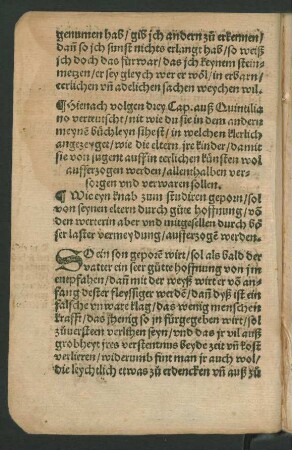 genummen hab / gib ich andern zů erkennen /
dañ so ich sunst nichts erlangt hab / so weiß
ich doch das fürwar / das ich keynem stein-
metzen / er sey gleych wer er wöl / in erbarn /
eerlichen vñ adelichen sachen weychen wil.
¶ Hienach volgen drey Cap. auß Quintilia
no verteutscht / nit wie du sie in dem andern
meynē büchleyn sihest / in welchen klerlich
angezeyget / wie die eltern jre kinder / damit
sie von jugent auff in eerlichen künsten wol
aufferzogen werden / allenthalben ver-
sorgen vnd verwaren sollen.
¶ Wie eyn knab zum studiren geporn / sol
von seynen eltern durch gůte hoffnung / vō
den werterin aber vnd mitgesellen durch bö
ser laster vermeydung / aufferzogē werden.
SO ein son geporē wirt / sol als bald der
vatter ein seer gůte hoffnung von jm
empfahen / dañ mit der weyß wirt er vō an-
fang dester fleyssiger werdē / dañ dyß ist ein
falsche vñ ware klag / das wenig menschen
krafft / das jhenig so in fürgegeben wirt / sol
zůuersteen verlihen seyn / vnd das jr vil auß
grobheyt jres verstentnus beyde zeit vñ kost
verlieren / widerumb fint man jr auch wol /
die leychtlich etwas zů erdencken vñ auß zů